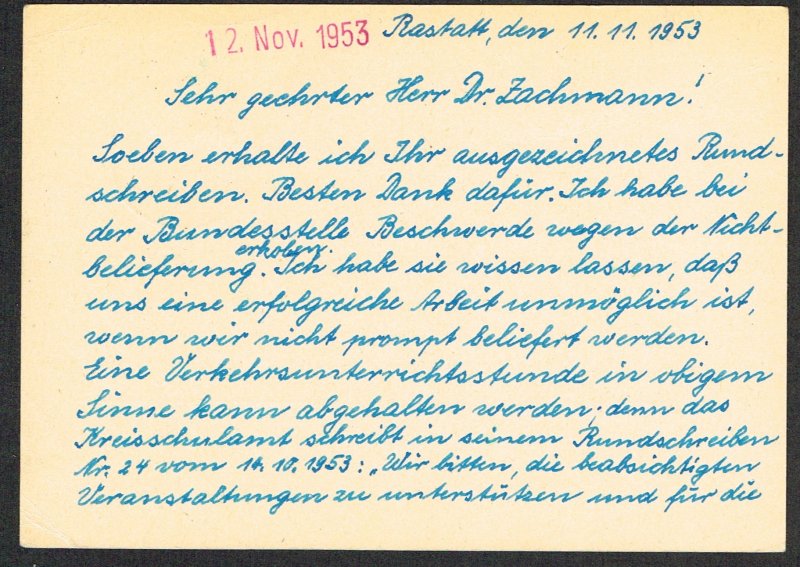 12. Nov. 1953 Rastatt, den 11.11.1953
Sehr geehrter Herr Dr. Zachmann!
Soeben erhalte ich Ihr ausgezeichnetes Rund-
schreiben. Besten Dank dafür. Ich habe bei
der Bundesstelle Beschwerde wegen der Nicht-
erhoben.
belieferung. Ich habe sie wissen lassen, daß
uns eine erfolgreiche Arbeit unmöglich ist,
wenn wir nicht prompt beliefert werden.
Eine Verkehrsunterrichtsstunde in obigem
Sinne kann abgehalten werden; denn das
Kreisschulamt schreibt in seinem Rundschreiben
Nr. 24 vom 14.10.1953: „Wir bitten, die beabsichtigten
Veranstaltungen zu unterstützen und für die